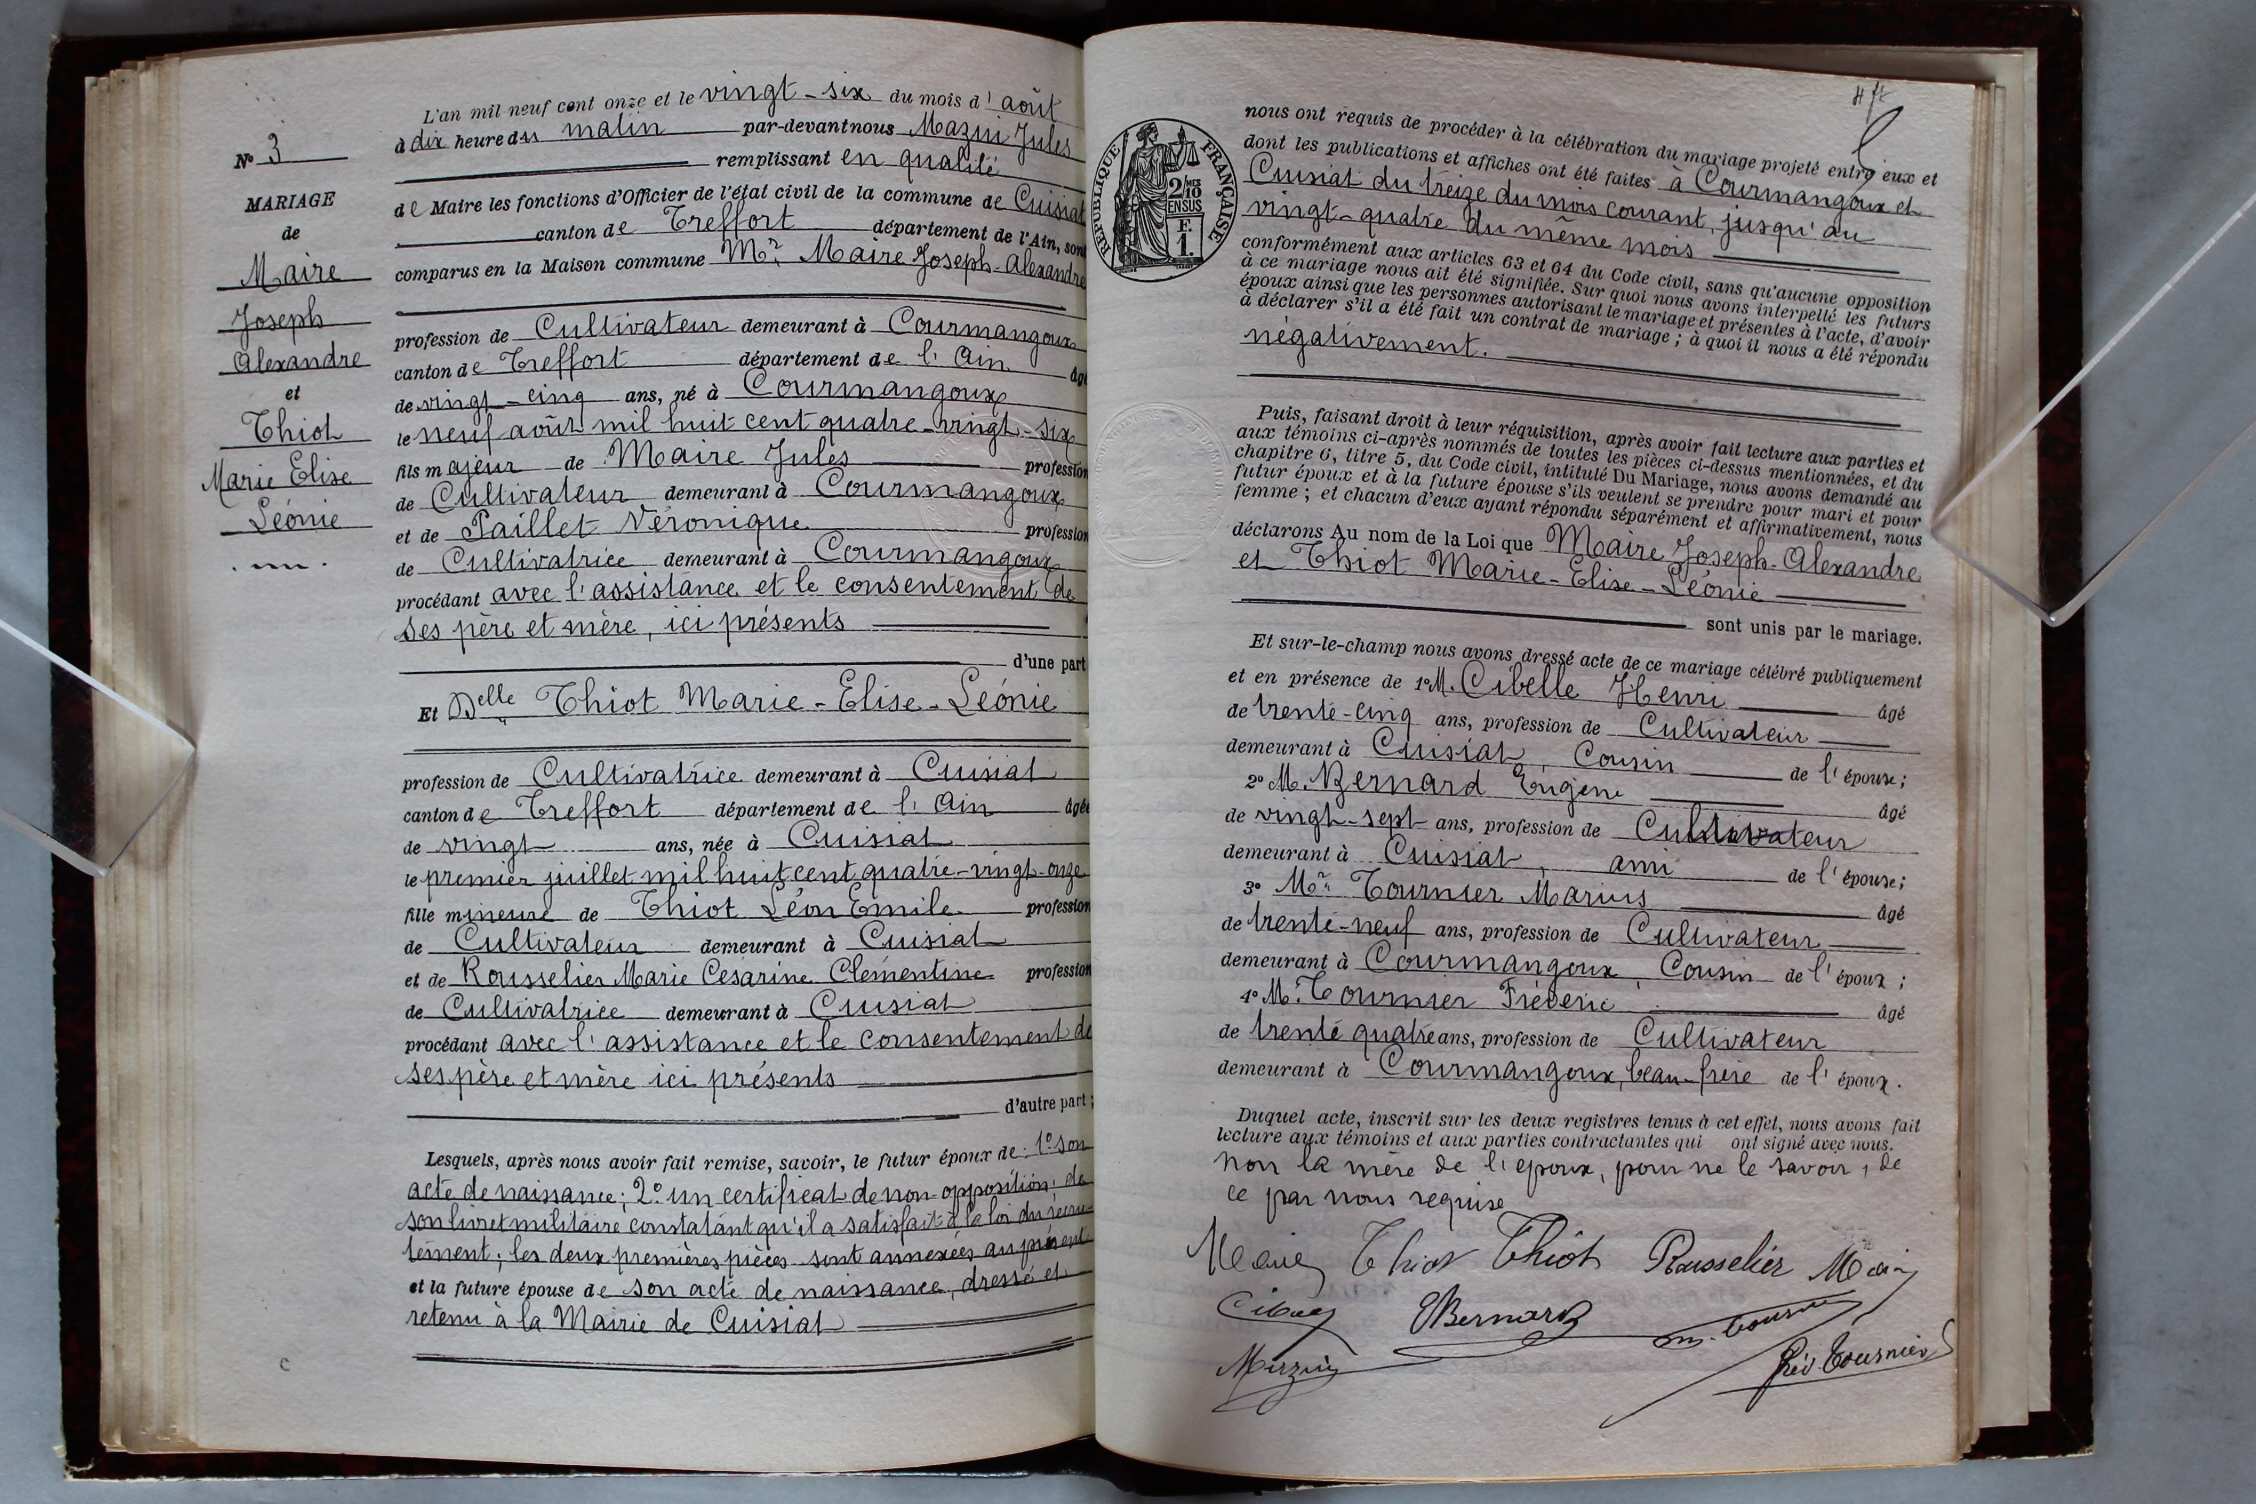 L'an mil neuf cent onze et le vingt-six du mois d'août
à dix heure du matin par-devant nous Mazui Jules
remplissant en qualité
de Maire les fonctions d'Officier de l'état civil de la commune de Cuisiat
canton de Treffort département de l'Ain, sont
comparus en la Maison commune Mr. Maire Joseph-Alexandre
profession de Cultivateur demeurant à Courmangoux
canton de Treffort département de l'Ain âgé
de vingt-cinq ans, né à Courmangoux
le neuf août mil huit cent quatre-vingt-six
fils majeur de Maire Jules profession
de Cultivateur demeurant à Courmangoux
et de Paillet Véronique profession
de Cultivatrice demeurant à Courmangoux
procédant avec l'assistance et le consentement de
ses père et mère, ici présents
d'une part
Et Delle Thiot Marie-Elise-Léonie
profession de Cultivatrice demeurant à Cuisiat
canton de Treffort département de l'Ain âgée
de vingt ans, née à Cuisiat
le premier juillet mil huit cent quatre-vingt-onze
fille mineure de Thiot Léon Emile profession
de Cultivateur demeurant à Cuisiat
et de Rousselier Marie Césarine Clémentine profession
de Cultivatrice demeurant à Cuisiat
procédant avec l'assistance et le consentement de
ses père et mère ici présents
d'autre part;
Lesquels, après nous avoir fait remise, savoir, le futur époux de: 1º son
acte de naissance; 2º un certificat de non-opposition; de
son livret militaire constatant qu'il a satisfait à la loi du recru-
tement; les deux premières pièces sont annexées au présent
et la future épouse de son acte de naissance, dressé et
retenu à la Mairie de Cuisiat
Nº 3
MARIAGE
de
Maire
Joseph
Alexandre
et
Thiot
Marie Elise
Léonie
c
RÉPUBLIQUE FRANÇAISE
2/10 MES
EN SUS
F.
1.
nous ont requis de procéder à la célébration du mariage projeté entre eux et
dont les publications et affiches ont été faites à Courmangoux et
Cuisiat du treize du mois courant, jusqu'au
vingt-quatre du même mois
conformément aux articles 63 et 64 du Code civil, sans qu'aucune opposition
à ce mariage nous ait été signifiée. Sur quoi nous avons interpellé les futurs
époux ainsi que les personnes autorisant le mariage et présentes à l'acte, d'avoir
à déclarer s'il a été fait un contrat de mariage; à quoi il nous a été répondu
négativement.
Puis, faisant droit à leur réquisition, après avoir fait lecture aux parties et
aux témoins ci-après nommés de toutes les pièces ci-dessus mentionnées, et du
chapitre 6, titre 5, du Code civil, intitulé Du Mariage, nous avons demandé au
futur époux et à la future épouse s'ils veulent se prendre pour mari et pour
femme; et chacun d'eux ayant répondu séparément et affirmativement, nous
déclarons Au nom de la Loi que Maire Joseph-Alexandre
et Thiot Marie-Elise-Léonie
sont unis par le mariage.
Et sur-le-champ nous avons dressé acte de ce mariage célébré publiquement
et en présence de 1º M. Cibelle Henri âgé
de trente-cinq ans, profession de Cultivateur
demeurant à Cuisiat, Cousin de l'épouse;
2º M. Bernard Eugène âgé
de vingt-sept ans, profession de Cultivateur
demeurant à Cuisiat, ami de l'épouse;
3º Mr. Tournier Marius âgé
de trente-neuf ans, profession de Cultivateur
demeurant à Courmangoux, Cousin de l'époux;
4º M. Tournier Fréderic âgé
de trente quatre ans, profession de Cultivateur
demeurant à Courmangoux, beau-frère de l'époux.
Duquel acte, inscrit sur les deux registres tenus à cet effet, nous avons fait
lecture aux témoins et aux parties contractantes qui ont signé avec nous.
non la mère de l'époux, pour ne le savoir, de
ce par nous requise
Maire Thiot Thiot Rousselier
EBernard m. Tournier
Fréd Tournier